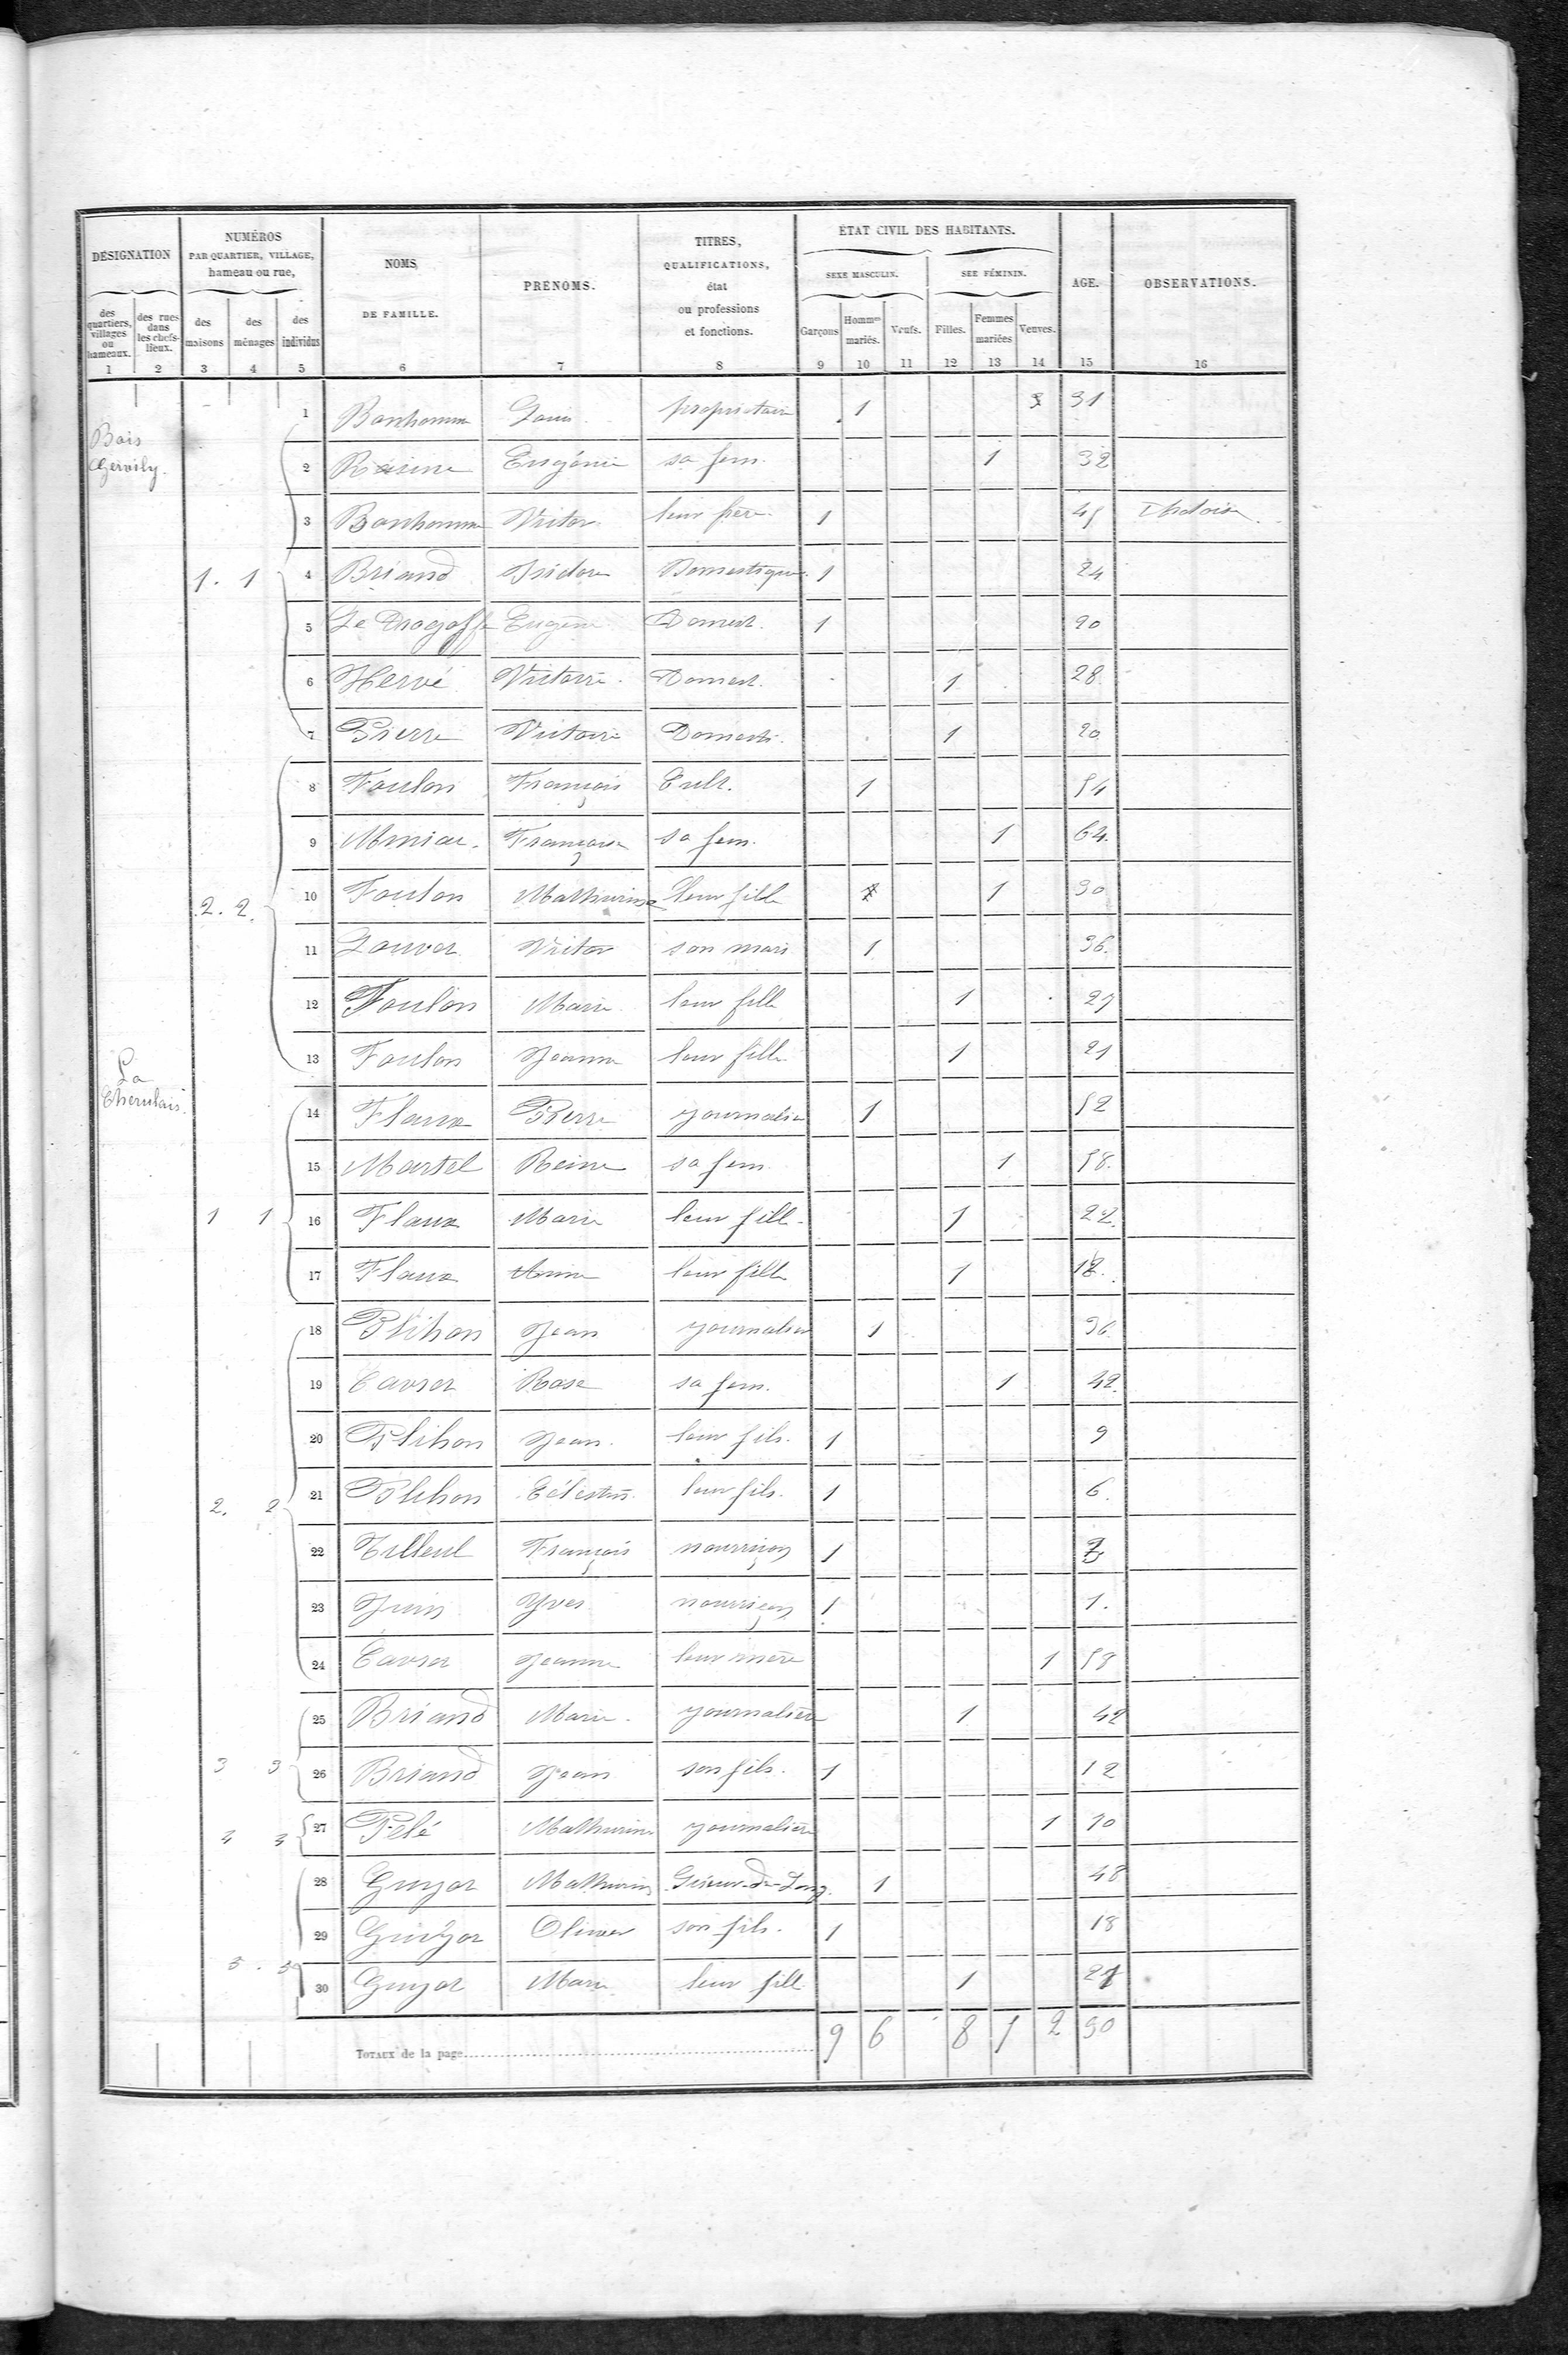 DÉSIGNATION
des quartiers, villages ou hameaux.
des rues dans les chefs-lieux.
NUMÉROS
PAR QUARTIER, VILLAGE,
hameau ou rue,
des maisons
des ménages
des individus
NOMS
DE FAMILLE.
PRÉNOMS.
TITRES,
QUALIFICATIONS,
état
ou professions
et fonctions.
ÉTAT CIVIL DES HABITANTS.
SEXE MASCULIN.
SEE FÉMININ.
Garçons
Hommes mariés.
Veufs.
Filles.
Femmes mariées
Veuves.
AGE.
OBSERVATIONS.
1 2 3 4 5 6 7 8 9 10 11 12 13 14 15 16
Bois
Gervily.
1 Bonhomme Louis propriétaire 1 31
2 Eugénie sa fem. 1 32
3 Bonhomme Victor leur frère 1
1. 1
4 Briand Isidore Domestique 1 24
5 Eugène Domest. 1 20
6 Hervé Victoire Domest. 1 28
7 Pierre Victoire Domesti. 1 20
8 Foulon François Cult. 1 54
9 Françoise sa fem. 1 64
2. 2.
10 Foulon Mathurine leur fille 1 30
11 Louver Victor son mari 1 36
12 Foulon Marie leur fille 1 27
13 Foulon Jeanne leur fille 1 21
La
14 Flaux Pierre journalier 1 52
15 Martel Reine sa fem 1 58
1 1
16 Flaux Marie leur fill. 1 22
17 Flaux Anne leur fille 1
18 Plihon Jean journalier 1 36
19 Rose sa fem. 1 42
20 Plihon Jean leur fils. 1 9
2. 2
21 Plihon Célestin leur fils. 1 6
22 Tilleul François nourriçon 1
23 Juin Yves nourriçon 1 1
24 Jeanne leur mère 1 58
25 Briand Marie journalière 1 42
3 3
26 Briand Jean son fils. 1 12
27 Pelé Mathurine journalière 1 70
28 Guyot Mathurin 1 48
29 Guyot Olivier son fils. 1 18
5. 5
30 Guyot Marie leur fill 1 21
TOTAUX de la page 9 6 8 5 2 30